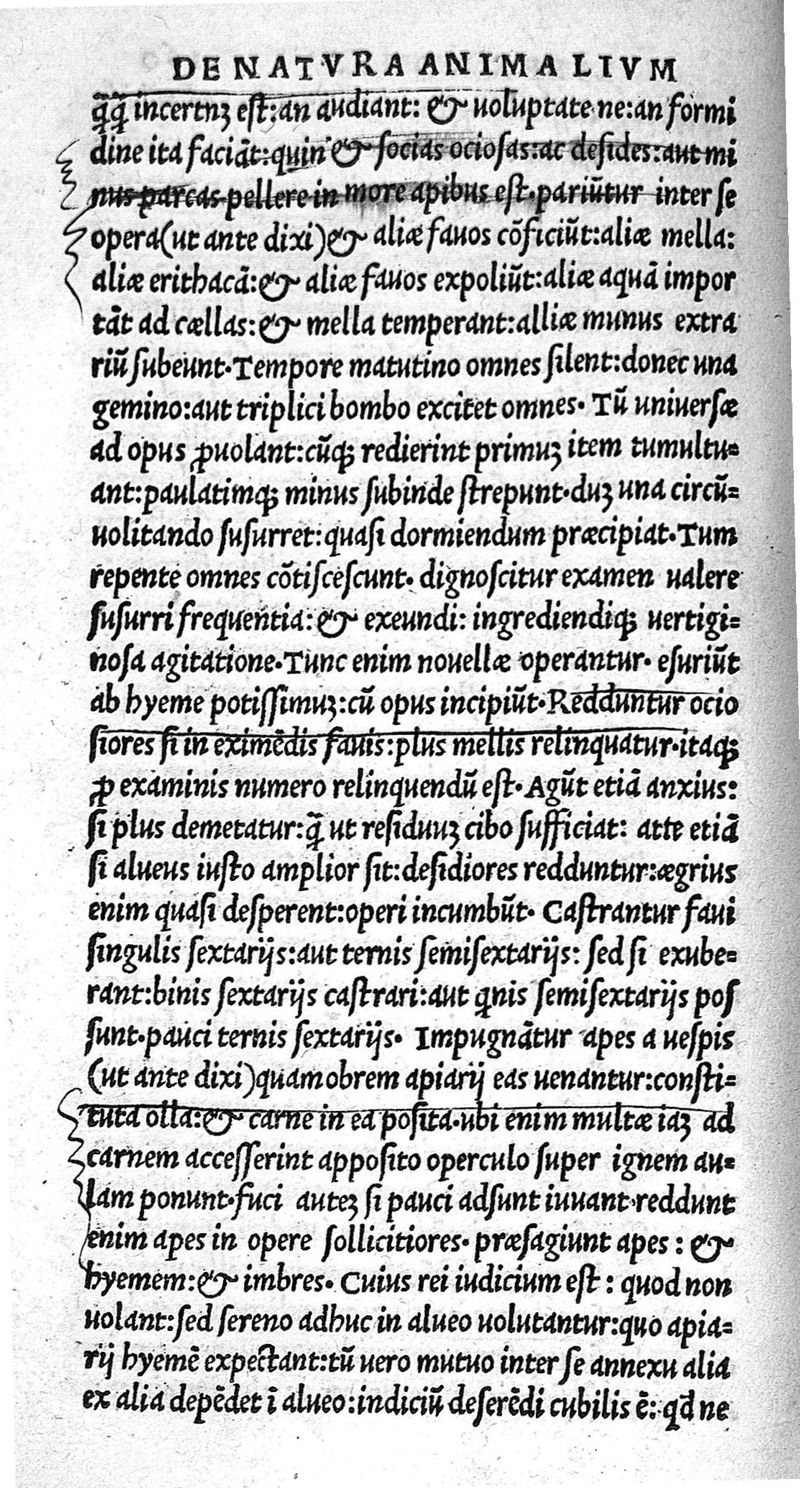 DE NATVRA ANIMALIVM
q̃q̃ incertuꝫ est:an audiant: & uoluptate ne:an formi
dine ita faciãt:quin & socias ociosas:ac desides:aut mi
nus parcas pellere in more apibus est·pariũtur inter se
opera(ut ante dixi)& aliæ fauos cõficiũt:aliæ mella:
aliæ erithacã:& aliæ fauos expoliũt:aliæ aquã impor
tãt ad cællas:& mella temperant:alliæ munus extra
riũ subeunt·Tempore matutino omnes silent:donec una
gemino:aut triplici bombo excitet omnes· Tũ uniuersæ
ad opus ꝓuolant:cũꝗ redierint primuꝫ item tumultu=
ant:paulatimꝗ minus subinde strepunt·duꝫ una circũ=
uolitando susurret:quasi dormiendum præcipiat·Tum
repente omnes cõtiscescunt· dignoscitur examen ualere
susurri frequentia:& exeundi: ingrediendiꝗ uertigi=
nosa agitatione·Tunc enim nouellæ operantur· esuriũt
ab hyeme potissimuꝫ:cũ opus incipiũt·Redduntur ocio
siores si in eximẽdis fauis:plus mellis relinquatur·itaꝗ
ꝓ examinis numero relinquendũ est·Agũt etiã anxius:
si plus demetatur:q̃ ut residuuꝫ cibo sufficiat: atte etiã
si alueus iusto amplior sit:desidiores redduntur:ægrius
enim quasi desperent:operi incumbũt· Castrantur faui
singulis sextarijs:aut ternis semisextarijs: sed si exube=
rant:binis sextarijs castrari:aut q̃nis semisextarijs pos
sunt·pauci ternis sextarijs· Impugnãtur apes a uespis
(ut ante dixi)quamobrem apiarij eas uenantur:consti=
tuta olla:& carne in ea posita·ubi enim multæ iaꝫ ad
carnem accesserint apposito operculo super ignem au=
lam ponunt·fuci auteꝫ si pauci adsunt iuuant·reddunt
enim apes in opere sollicitiores· præsagiunt apes : &
hyemem:& imbres· Cuius rei iudicium est : quod non
uolant:sed sereno adhuc in alueo uolutantur:quo apia=
rij hyemẽ expectant:tũ uero mutuo inter se annexu alia
ex alia depẽdet ĩ alueo:indiciũ deserẽdi cubilis ẽ: qd̃ ne